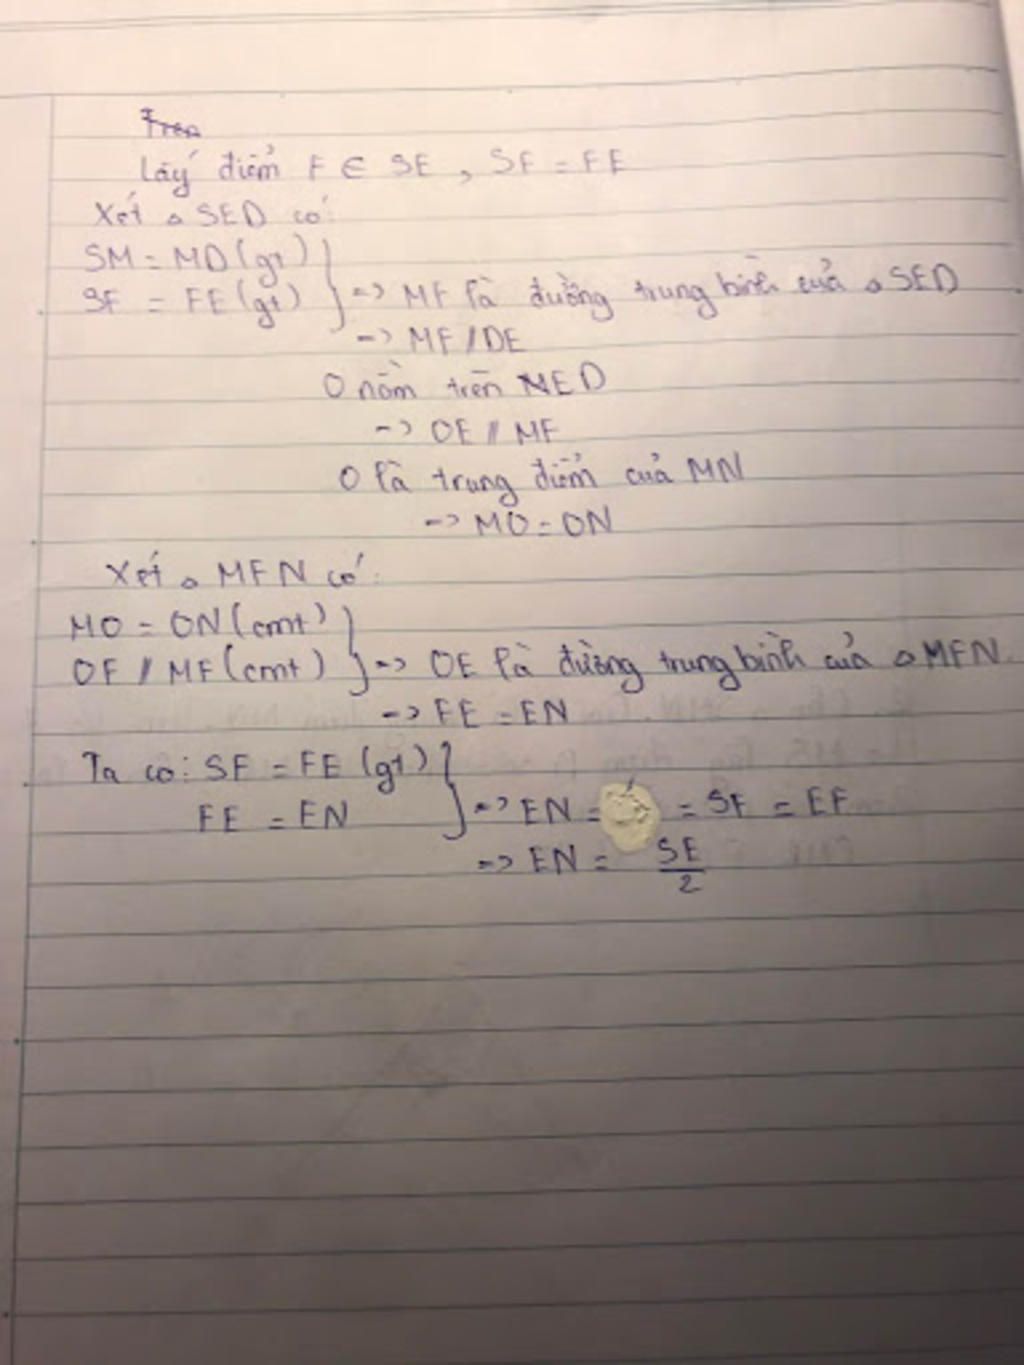 Lấy điểm F ∈ SE , SF = FE
Xét △ SED có:
SM = MD (gt)
SF = FE (gt) } => MF là đường trung bình của △ SED
=> MF // DE
O nằm trên MED
=> OE // MF
O là trung điểm của MN
=> MO = ON
Xét △ MFN có:
MO = ON (cmt)
OF // MF (cmt) } => OE là đường trung bình của △ MFN.
=> FE = EN
Ta có: SF = FE (gt)
FE = EN } => EN = = SF = EF
=> EN = SE/2